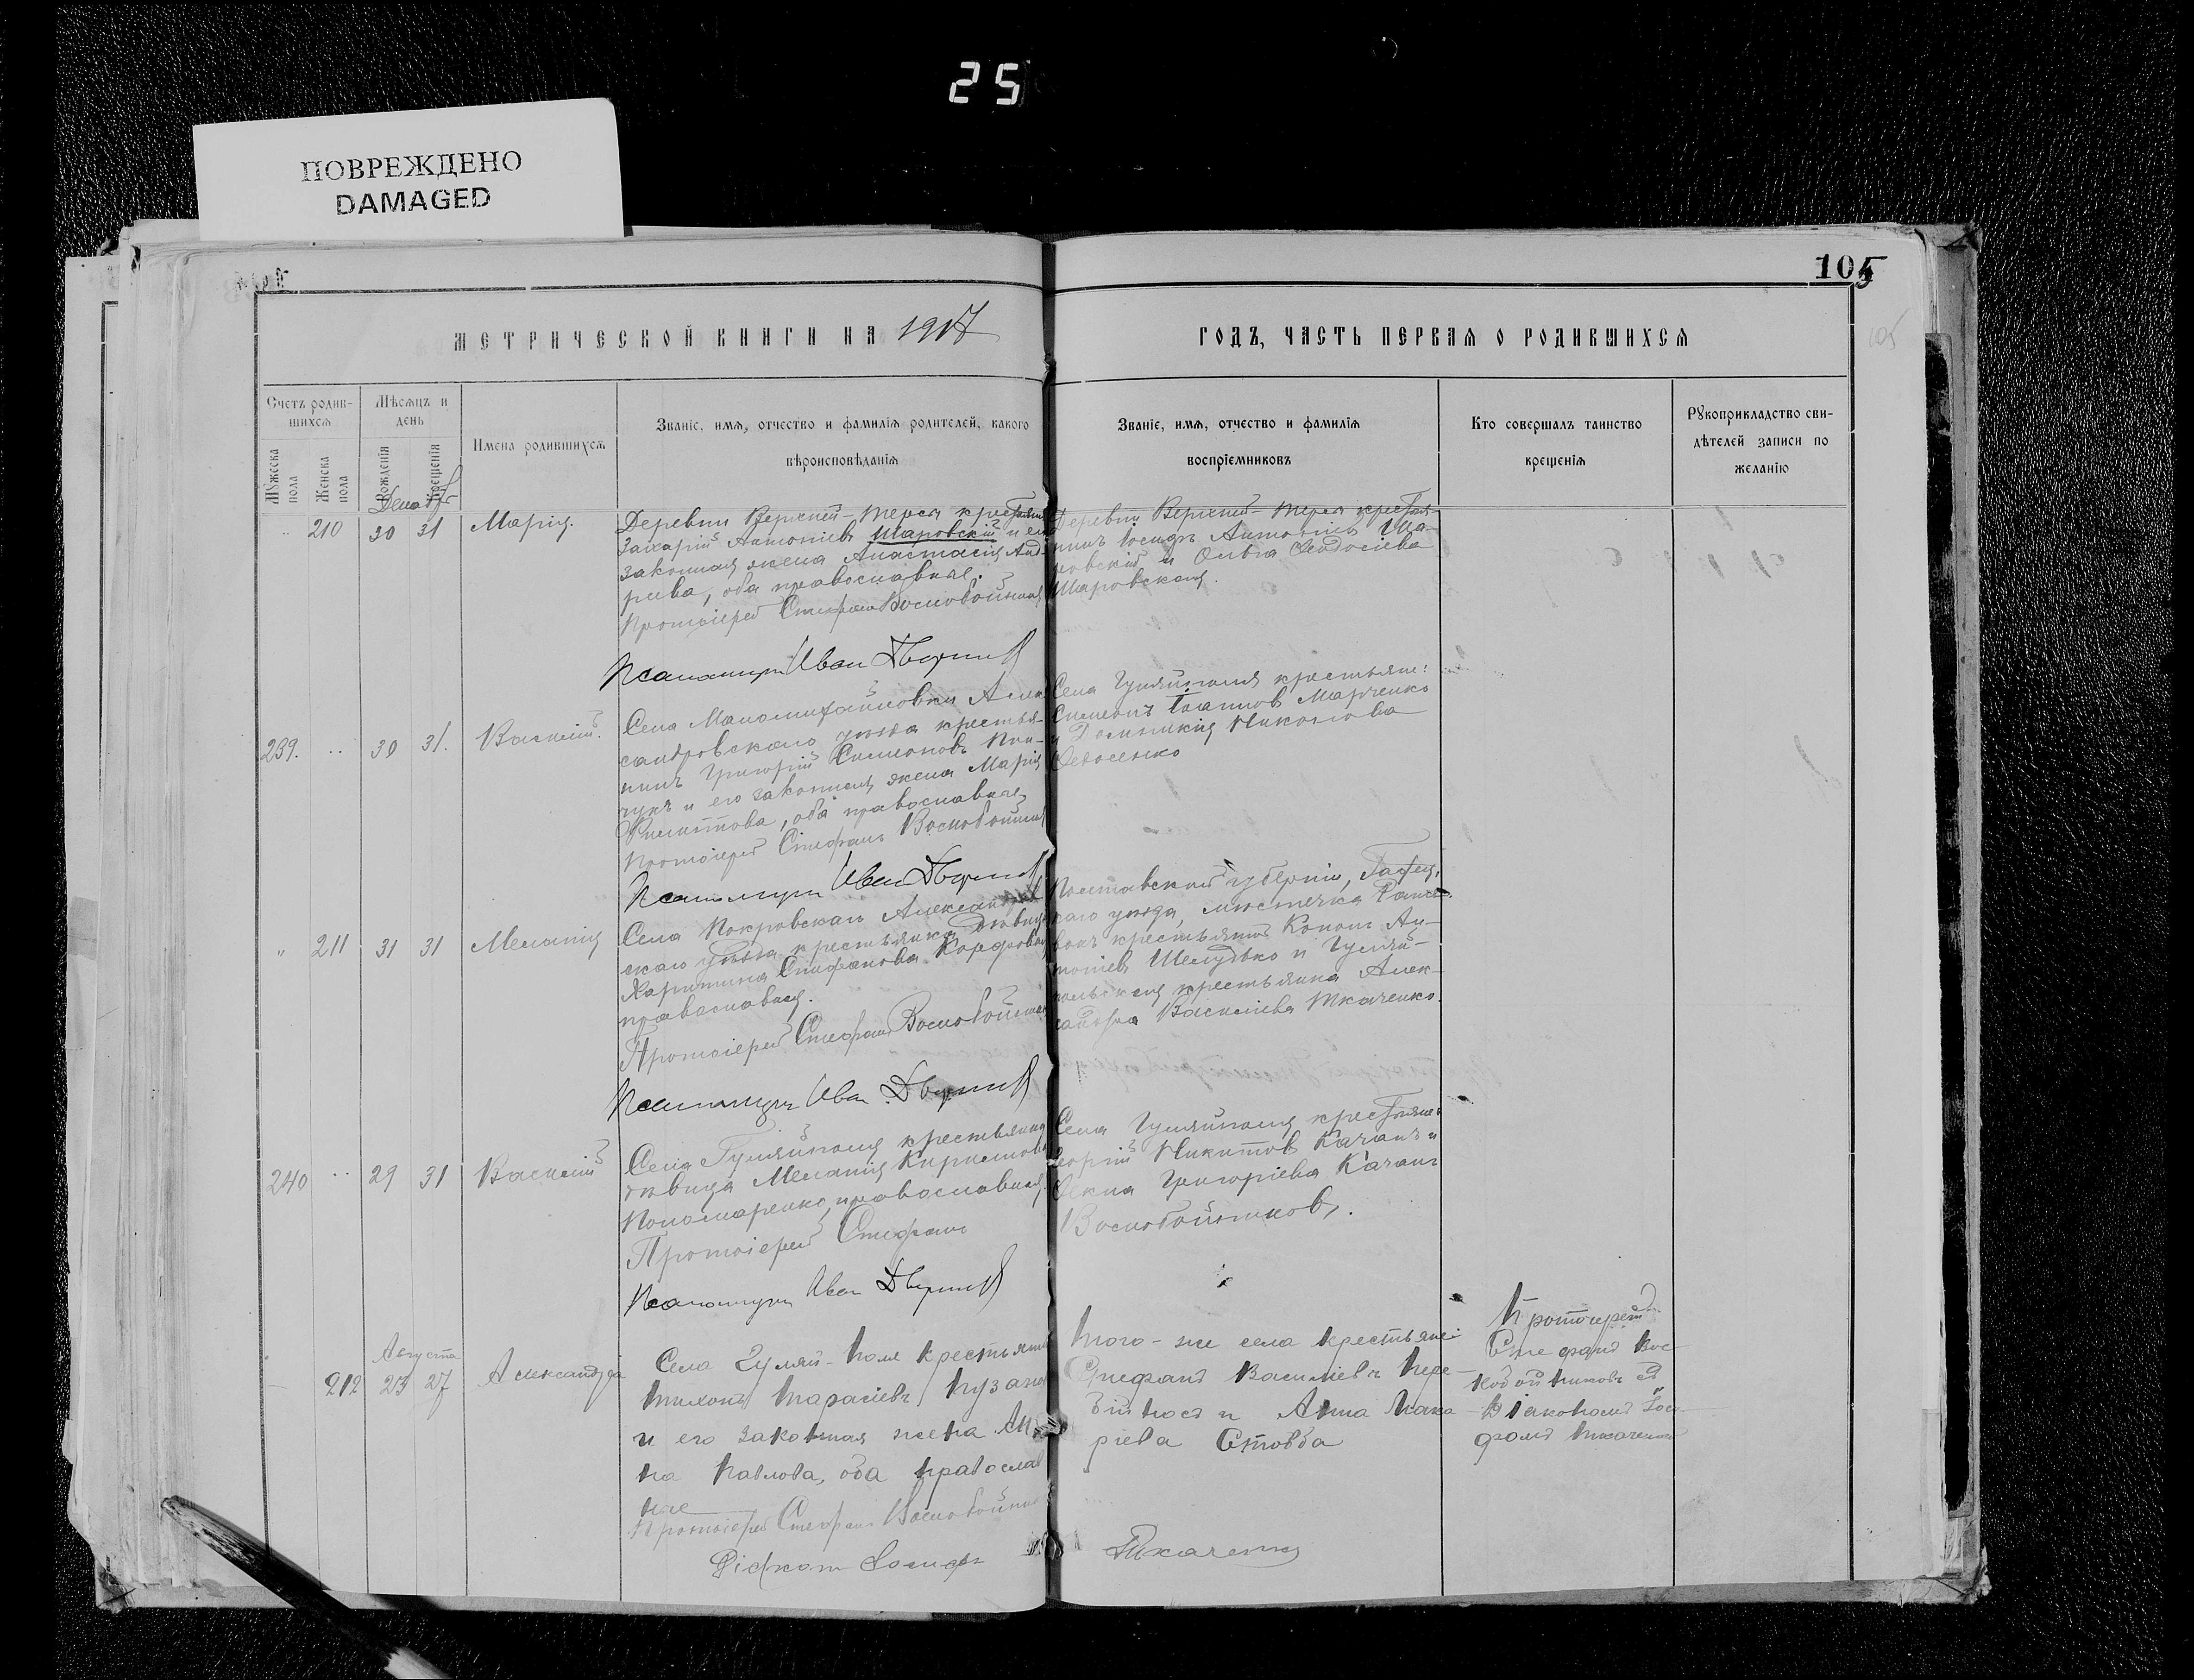 25
ПОВРЕЖДЕНО
DAMAGED
105
105
МЕТРИЧЕСКОЙ КНИГИ НА 1917
ГОДЪ, ЧАСТЬ ПЕРВАЯ О РОДИВШИХСЯ
Счетъ родив-
шихся
Мужеска
пола
Женска
пола
Мѣсяцъ и
день
Рожденія
Крещенія
Имена родившихся
Званіе, имя, отчество и фамилія родителей, какого
вѣроисповѣданія
Званіе, имя, отчество и фамилія
воспріемниковъ
Кто совершалъ таинство
крещенія
Рукоприкладство сви-
дѣтелей записи по
желанію
210 30 31 Марія.
Деревни Верхней-Терса
Захарій Антоніевъ Шаровскій и его
законная жена Анастасія Анд-
рева, оба православные.
Протоіерей Стефанъ Воскобойник
Псаломщик Иван
Деревни Верхней-Терса
Іосифъ Антоніевъ Ша-
ровскій и Ольга Феодосіева
Шаровская.
239. 30 31. Василій.
Села Маломихайловки Алек
сандровскаго уѣзда крестья-
нинъ Григорій Симеоновъ
и его законная жена Марія
Филиппова, оба православные
Протоіерей Стефанъ Воскобойник
Псаломщик Иван
Села Гуляйполя крестьяне:
Симеонъ Іоаннов Марченко
и Домникія Николаева
Федосенко
" 211 31 31 Меланія
Села Покровскаго Александров
скаго уѣзда крестьянка дѣвица
Харитина Стефанова
православная.
Протоіерей Стефанъ Воскобойник
Псаломщик Иван
Полтавской губерніи,
каго уѣзда, мѣстечка
крестьянин Конон Ан-
тоніев Шелудько и Гуляй-
польская крестьянка Алек-
сандра Василіева Ткаченко.
240 29 31 Василій
Села Гуляйполя крестьянка
дѣвица Меланія Кириллова
Пономаренко, православная.
Протоіерей Стефанъ
Псаломщик Иван
Села Гуляйполя крестьяне
Георгій Никитов Качанъ и
Григоріева Качанъ
Воскобойников.
Августа
212 23 27 Александра
Села Гуляй-Поля Крестьянинъ
Тихонъ Тарасіевъ
и его законная жена Ан
на Павлова, оба православ
ные
Протоіерей Стефанъ Воскобойник
Діакон Іосифъ
Того-же села крестьяне:
Стефанъ Василіевъ Пере-
и Анна Мака
ріева Стовба
Ткаченко
Протоіерей
Стефанъ Вос-
кобойниковъ съ
Діакономъ Іоси-
фомъ Ткаченко